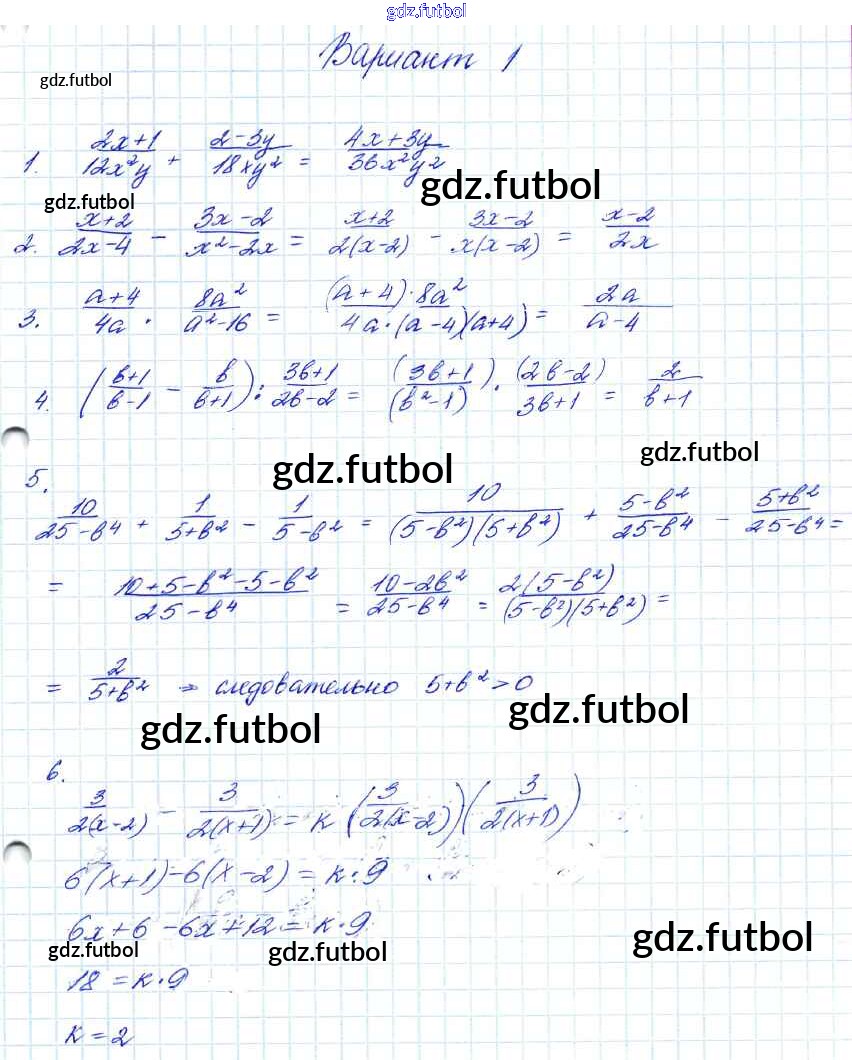 gdz.futbol
Вариант 1
gdz.futbol
1. (2x+1)/(12x²y) + (2-3y)/(18xy²) = (4x+3y)/(36x²y²)
gdz.futbol
gdz.futbol
2. (x+2)/(2x-4) - (3x-2)/(x²-2x) = (x+2)/(2(x-2)) - (3x-2)/(x(x-2)) = (x-2)/(2x)
3. (a+4)/(4a) · (8a²)/(a²-16) = ((a+4)·8a²)/(4a·(a-4)(a+4)) = (2a)/(a-4)
4. ((b+1)/(b-1) - b/(b+1)) : (3b+1)/(2b-2) = (3b+1)/(b²-1) · (2b-2)/(3b+1) = 2/(b+1)
gdz.futbol
gdz.futbol
5.
10/(25-b⁴) + 1/(5+b²) - 1/(5-b²) = 10/((5-b²)(5+b²)) + (5-b²)/(25-b⁴) - (5+b²)/(25-b⁴) =
= (10+5-b²-5-b²)/(25-b⁴) = (10-2b²)/(25-b⁴) = 2(5-b²)/((5-b²)(5+b²)) =
= 2/(5+b²) ⇒ следовательно 5+b²>0
gdz.futbol
gdz.futbol
6.
3/(2(x-2)) - 3/(2(x+1)) = к (3/(2(x-2)))(3/(2(x+1)))
6(x+1)-6(x-2) = к·9
6x+6-6x+12=к·9
gdz.futbol
gdz.futbol
gdz.futbol
18=к·9
к=2